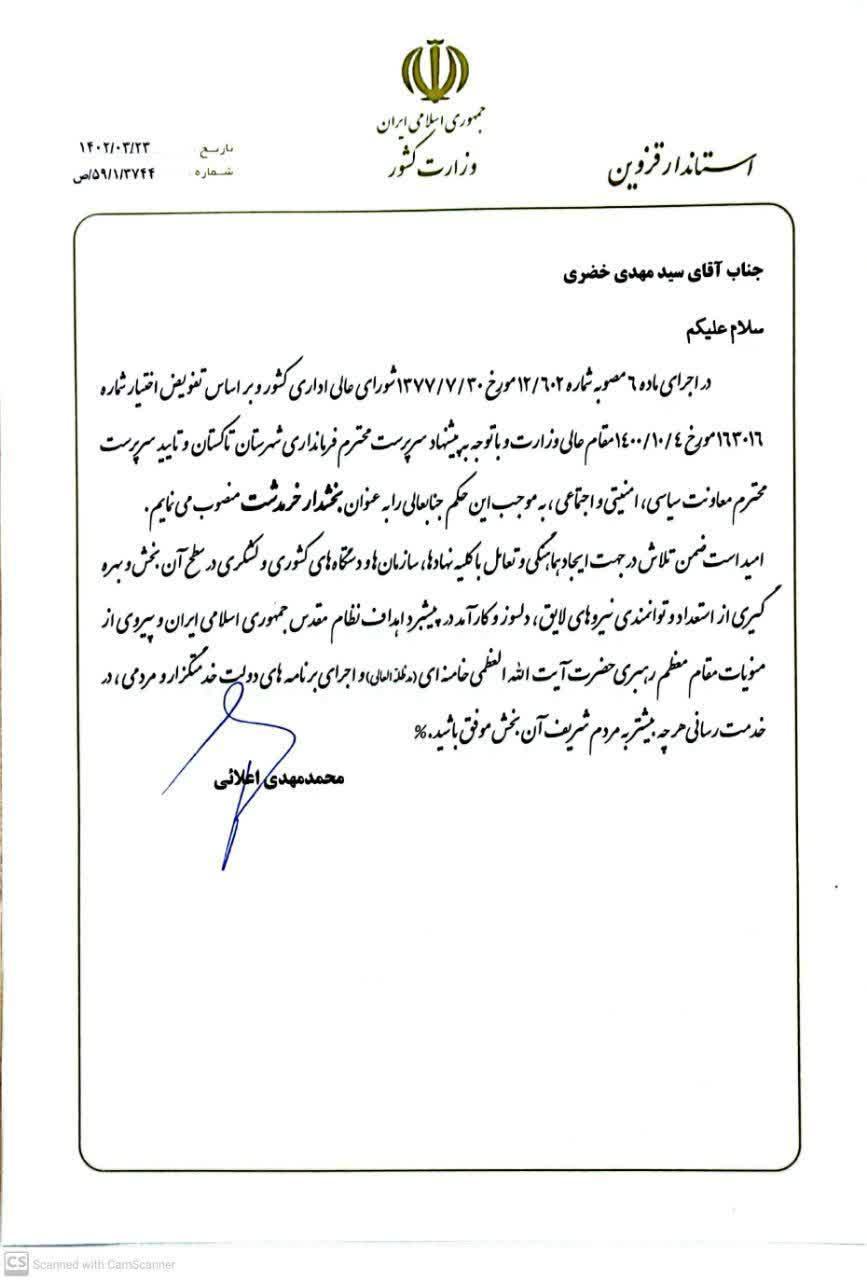 جمهوری اسلامی ایران
وزارت کشور
استاندار قزوین
تاریخ : ۱۴۰۲/۰۳/۲۳
شماره : ۵۹/۱/۳۷۴۴/ص
جناب آقای سید مهدی خضری
سلام علیکم
در اجرای ماده ۶ مصوبه شماره ۱۲/۶۰۲ مورخ ۱۳۷۷/۷/۳۰ شورای عالی اداری کشور و بر اساس تفویض اختیار شماره
۱۶۳۰۱۶ مورخ ۱۴۰۰/۱۰/۴ مقام عالی وزارت و با توجه به پیشنهاد سرپرست محترم فرمانداری شهرستان تاکستان و تایید سرپرست
محترم معاونت سیاسی، امنیتی و اجتماعی، به موجب این حکم جنابعالی را به عنوان بخشدار خرمدشت منصوب می نمایم.
امید است ضمن تلاش در جهت ایجاد هماهنگی و تعامل با کلیه نهادها، سازمان ها و دستگاه های کشوری و لشکری در سطح آن بخش و بهره
گیری از استعداد و توانمندی نیروهای لایق، دلسوز و کارآمد در پیشبرد اهداف نظام مقدس جمهوری اسلامی ایران و پیروی از
منویات مقام معظم رهبری حضرت آیت الله العظمی خامنه ای (مدظله العالی) و اجرای برنامه های دولت خدمتگزار و مردمی، در
خدمت رسانی هر چه بیشتر به مردم شریف آن بخش موفق باشید.%
محمدمهدی اعلائی
CS Scanned with CamScanner